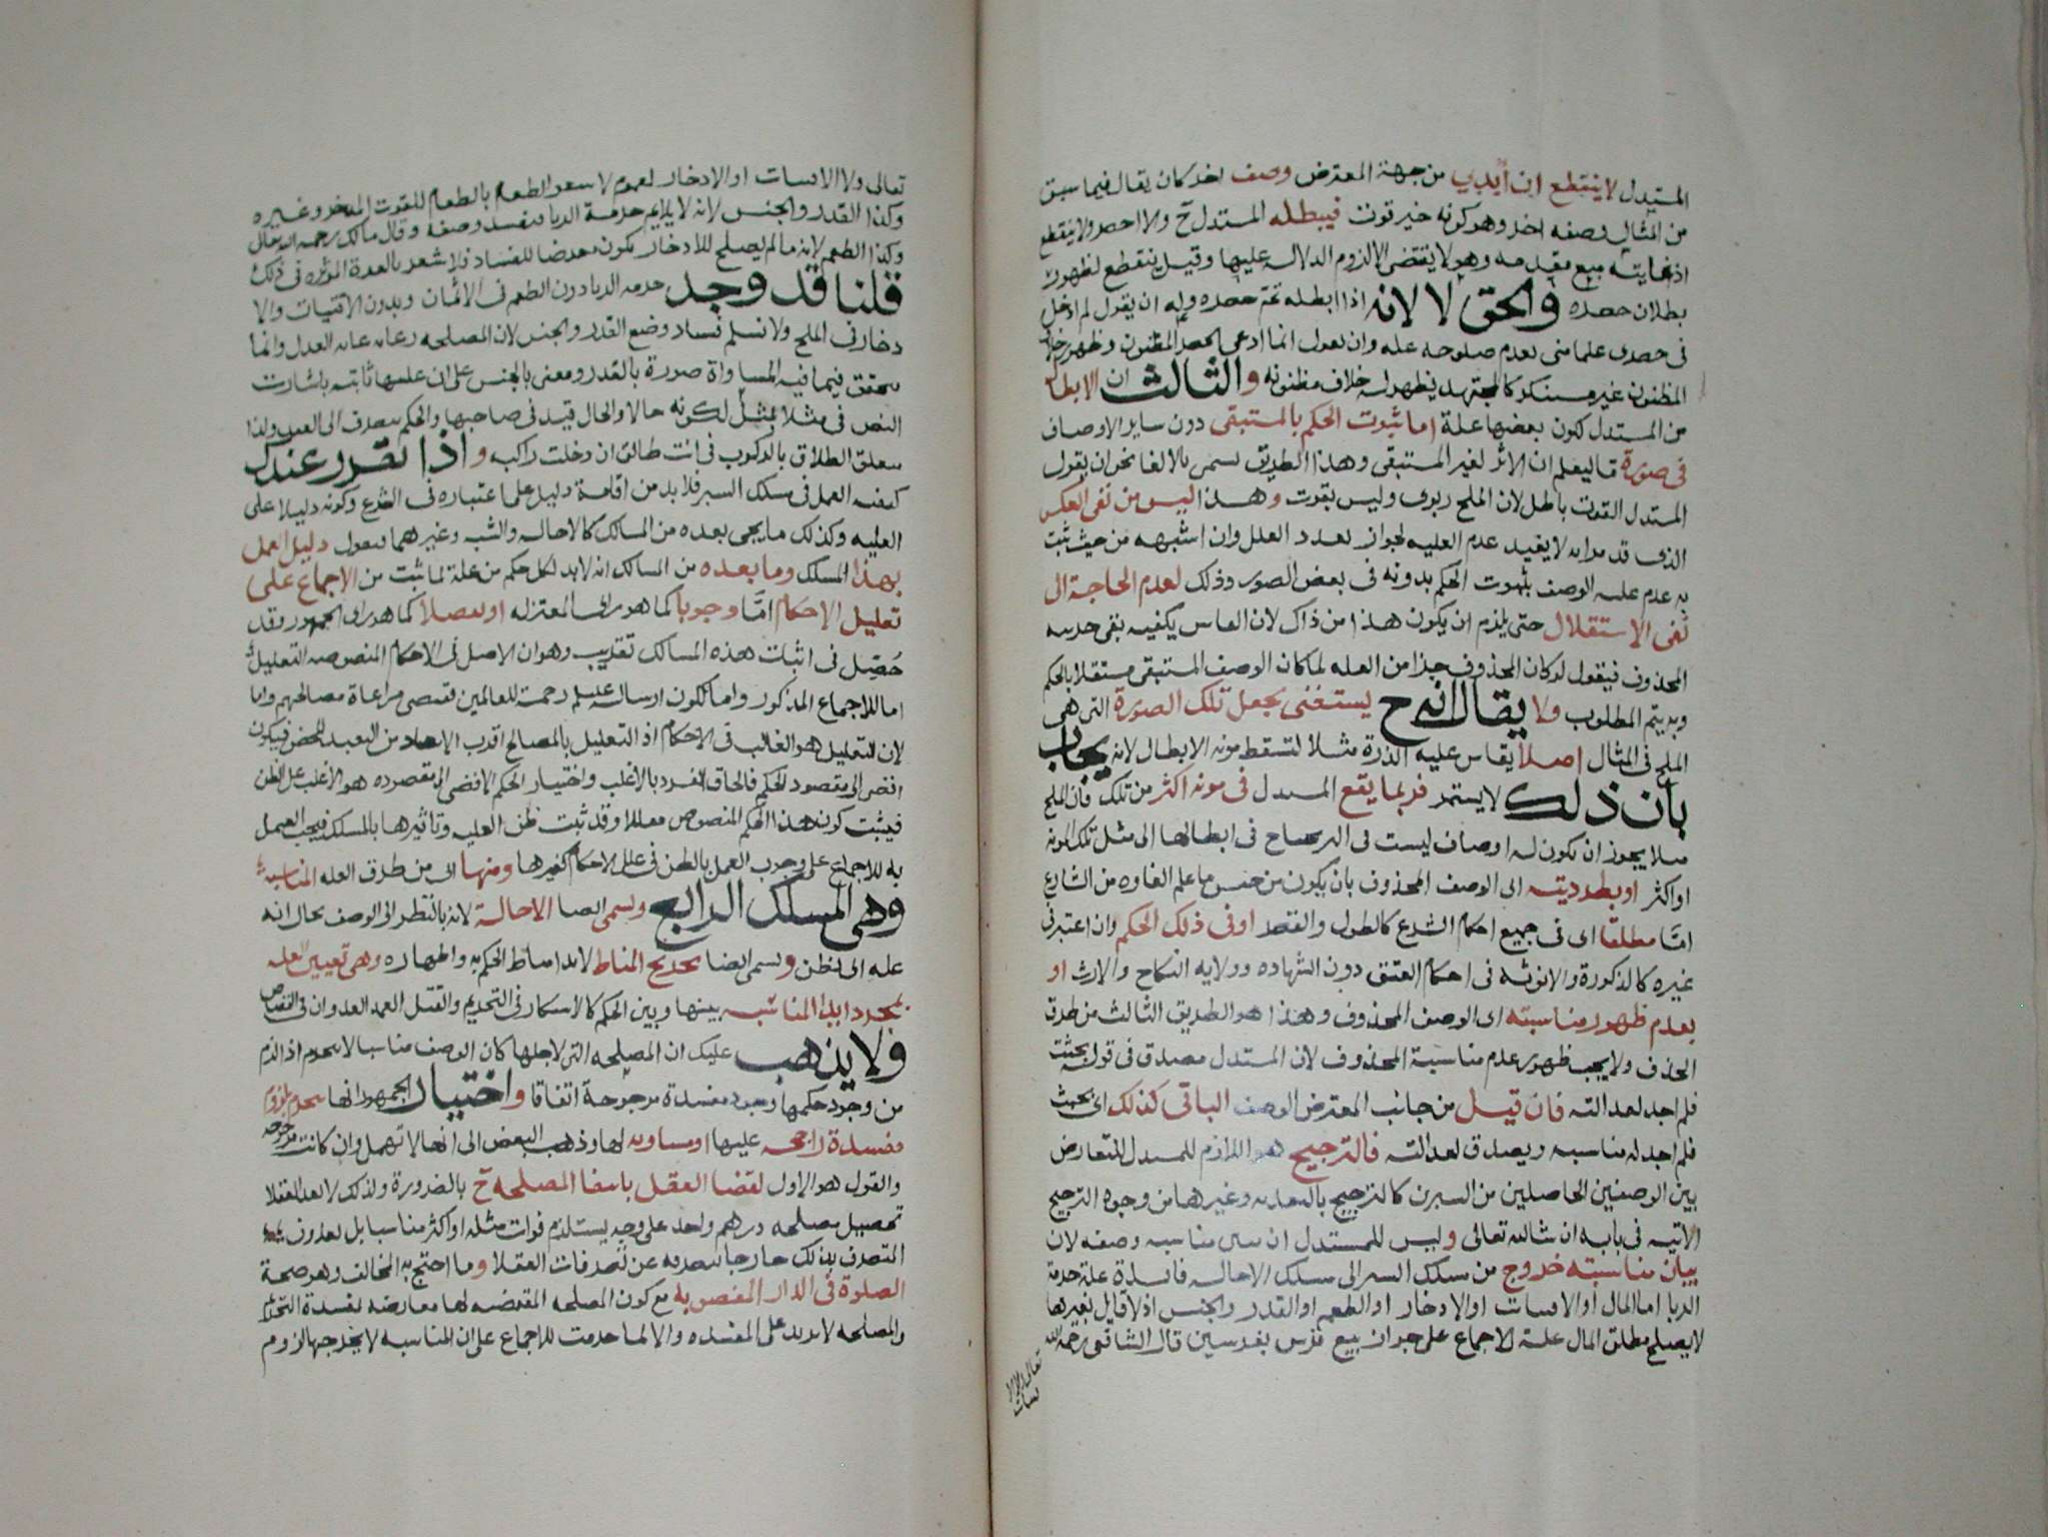 المستدل لا ينقطع ان أبدي من جهة المعترض وصف اخر كان يقال فيما سبق
من المثال وصفه اخر وهو كونه خير قوت فيبطله المستدل ح ولا احصر ولا ينقطع
اذ غايته منع مقدمه وهو لا يقتضى الا لزوم الدلاله عليها وقيل ينقطع لظهور
بطلان حصره والحق لا لانه اذا ابطله تم حصره وله ان يقول لم ادخل
فى حصرى علما منى بعدم صلوحه عله وان يقول انما ادعى الحصر المظنون وظهور خلاف
المظنون غير مستنكر كالمجتهد يظهر له خلاف مظنونه والثالث ان الابطال
من المستدل لكون بعضها علة اما ثبوت الحكم بالمستبقى دون ساير الاوصاف
فى صورة ما ليعلم ان لا اثر لغير المستبقى وهذا الطريق يسمى بالالغا نحو ان يقول
المستدل القوت باطل لان الملح ربوى وليس بقوت وهذا ليس من نفى العكس
الذى قد مر انه لا يفيد عدم العليه لجواز تعدد العلل وان اشبهه من حيث ثبت
به عدم عليه الوصف بثبوت الحكم بدونه فى بعض الصور وذلك لعدم الحاجة الى
نفى الاستقلال حتى يلزم ان يكون هذا من ذاك لان القايس يكفيه نفى جزييه
المحذوف فيقول لو كان المحذوف جزا من العله لما كان الوصف المستبقى مستقلا بالحكم
وبه يتم المطلوب ولا يقال انه ح يستغنى بجعل تلك الصورة التى هى
الملح فى المثال اصلا يقاس عليه الذرة مثلا لتسقط مونه الابطال لانه يجاب
بان ذلك لا يستمر فربما يقع المستدل فى مونه اكثر من تلك فان الملح
مثلا يجوز ان تكون له اوصاف ليست فى البر يحتاج فى ابطالها الى مثل تلك المونه
او اكثر او بطرديته اى الوصف المحذوف بان يكون من جنس ما علم الغاوه من الشارع
امّا مطلقا اى فى جميع احكام الشرع كالطول والقصر او فى ذلك الحكم وان اعتبر فى
غيره كالذكورة والانوثه فى احكام العتق دون الشهاده وولايه النكاح والارث او
بعدم ظهور مناسبته اى الوصف المحذوف وهذا هو الطريق الثالث من طرق
الحذف ولا يجب ظهور عدم مناسبة المحذوف لان المستدل مصدق فى قوله بحثت
فلم اجد لعدالته فان قيل من جانب المعترض الوصف الباقى كذلك اى بحثت
فلم اجد له مناسبه ويصدق لعدالته فالترجيح هو اللازم للمستدل للتعارض
بين الوصفين الحاصلين من السبرين كالترجيح بالتعديه وغيرها من وجوه الترجيح
الاتيه فى بابه ان شا الله تعالى وليس للمستدل ان يبين مناسبه وصفه لان
بيان مناسبته خروج من مسلك السبر الى مسلك الاخاله فايدة علة حرمة
الربا اما المال او الاقتيات او الادخار او الطعم او القدر والجنس اذ لا قايل بغيرها
لا يصلح مطلق المال علة للاجماع على جواز بيع فرس بفرسين قال الشافعى رحمه الله
تعالى ولا الا
قتيات
تعالى ولا الاقتيات او الادخار لعموم لا تبيعوا الطعام بالطعام للقوت المدخر وغيره
وكذا القدر والجنس لانه لا يلايم حرمة الربا فيفسد وصفه وقال مالك رحمه الله تعالى
وكذا الطعم لانه ما لم يصلح للادخار يكون معرضا للفساد فلا يشعر بالعزة المؤثره فى ذلك
قلنا قد وجد حرمه الربا دون الطعم فى الاثمان وبدون الاقتيات والا
دخار فى الملح ولا نسلم فساد وضع القدر والجنس لان المصلحه رعايه غايه العدل وانما
يتحقق فيما فيه المساواة صورة بالقدر ومعنى بالجنس على ان عليتها ثابته باشارت
النص فى مثلا بمثل لكونه حالا والحال قيد فى صاحبها والحكم ينصرف الى القيد ولذا
يتعلق الطلاق بالركوب فى انت طالق ان دخلت راكبه واذا تقرر عندك
كيفيه العمل فى مسلك السبر فلا بد من اقامة دليل على اعتباره فى الشرع وكونه دليلا على
العليه وكذلك ما يجى بعده من المسالك كالاخاله والشبه وغيرهما فنقول دليل العمل
بهذا المسلك وما بعده من المسالك انه لا بد لكل حكم من علة لما ثبت من الاجماع على
تعليل الاحكام امّا وجوبا كما هو راى المعتزله او تفضلا كما هو راى الجمهور وقد
حُصّل فى اثبات هذه المسالك تقريب وهو ان الاصل فى الاحكام المنصوصه التعليل
اما للاجماع المذكور واما لكون ارساله عليلم رحمة للعالمين فيقتضى مراعاة مصالحهم واما
لان التعليل هو الغالب فى الاحكام اذ التعليل بالمصالح اقرب الى الانقياد من التعبد المحض فيكون
افضى الى مقصود الحكم فالحاق الفرد بالاغلب واختيار الحكم الافضى الى مقصوده هو الاغلب على الظن
فيثبت كون هذا الحكم المنصوص معللا وقد ثبت ظن العليه وتاثيرها بالمسلك فيجب العمل
به للاجماع على وجوب العمل بالظن فى علل الاحكام كغيرها ومنها اى من طرق العله المناسبه
وهى المسلك الرابع ويسمى ايضا الاخالة لانه بالنظر الى الوصف يخال انه
عله اى يظن ويسمى ايضا تخريج المناط لانه ابدا مناط الحكم به واظهاره وهى تعيين العله
بمجرد ابدا المناسبه بينها وبين الحكم كالاسكار فى التحريم والقتل العمد العدوان فى القصاص
ولا يذهب عليك ان المصلحه التى لاجلها كان الوصف مناسبا لا تنخرم اذا لزم
من وجود حكمها وجود مفسدة مرجوحة اتفاقا واختيار الجمهور انها تنخرم بلزوم
مفسدة راجحه عليها او مساويه لها وذهب البعض الى انها لا تهمل وان كانت مرجوحه
والقول هو الاول لقضا العقل بانتفا المصلحه ح بالضرورة ولذلك لا يعد العقلا
تحصيل مصلحه درهم واحد على وجه يستلزم فوات مثله او اكثر مناسبا بل يعدون
المتصرف بذلك خارجا تصرفه عن تصرفات العقلا وما احتج به المخالف وهو صحة
الصلوة فى الدار المغصوبه مع كون المصلحه المقتضيه لها معارضه لمفسدة التحريم
والمصلحه لا تزيد على المفسده والا لما حرمت للاجماع على ان المناسبه لا يخرجها لزوم